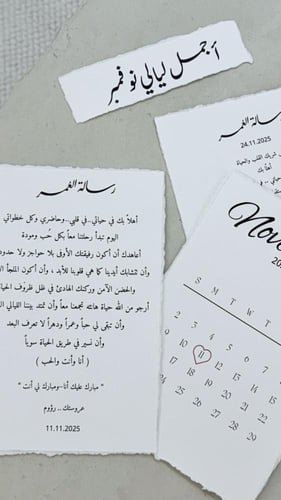 أجمل ليالي نوفمبر
رسالة العمر
24.11.2025
شريك القلب والحياة
أهلاً بك
رسالة العمر
أهلاً بك في حياتي..في قلبي..وحاضري وكل خطواتي
اليوم نبدأ رحلتنا معاً بكل حُب ومودة
أعاهدك أن أكون رفيقتك الأوفى بلا حواجز ولا حدود
وأن تتشابك أيدينا كما هي قلوبنا للأبد ، وأن أكون الملجأ
والحضن الآمن وركنك الهادئ في ظل ظروف الحياة
أرجو من الله حياة هانئه تجمعنا معاً وأن تمتد بيننا الليالي
وأن نبقى لي حباً وعمراً ودهراً لا تعرف البعد
وأن نسير في طريق الحياة سوياً
( أنا وأنت والحب )
" مبارك عليك أنا-ومبارك لي أنت "
عروستك .. رؤوم
11.11.2025
Nove
20
S M T W T
2 3 4 5 6
9 10 11 12 13
17 18 19 20
24 25 26 27
28 29